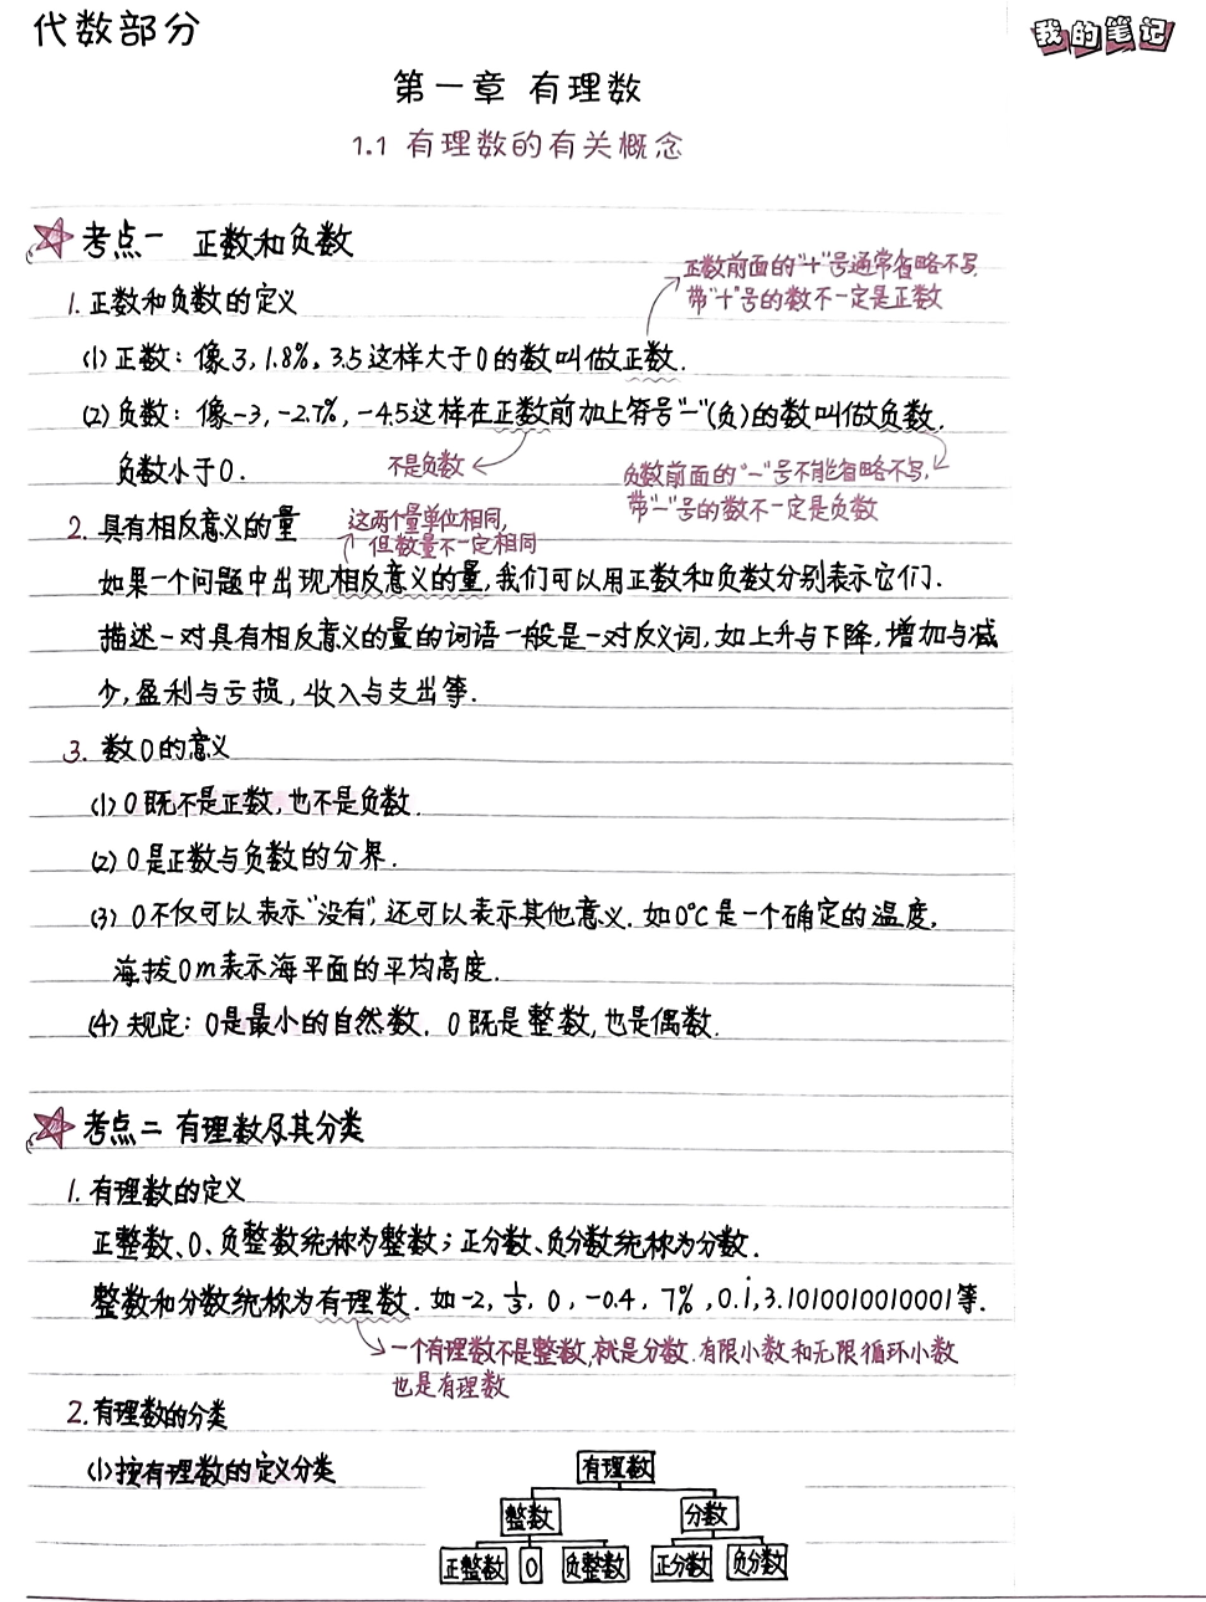 代数部分
我的笔记
第一章 有理数
1.1 有理数的有关概念
考点一 正数和负数
正数前面的“+”号通常省略不写,
带“+”号的数不一定是正数
1. 正数和负数的定义
(1) 正数: 像3, 1.8%, 3.5这样大于0的数叫做正数.
(2) 负数: 像-3, -2.7%, -4.5这样在正数前加上符号“-”(负)的数叫做负数.
负数小于0.
不是负数
负数前面的“-”号不能省略不写,
带“-”号的数不一定是负数
2. 具有相反意义的量
这两个量单位相同,
但数量不一定相同
如果一个问题中出现相反意义的量,我们可以用正数和负数分别表示它们.
描述一对具有相反意义的量的词语一般是一对反义词,如上升与下降,增加与减
少,盈利与亏损,收入与支出等.
3. 数0的意义
(1) 0既不是正数,也不是负数.
(2) 0是正数与负数的分界.
(3) 0不仅可以表示“没有”,还可以表示其他意义.如0℃是一个确定的温度,
海拔0m表示海平面的平均高度.
(4) 规定: 0是最小的自然数. 0既是整数,也是偶数.
考点二 有理数及其分类
1. 有理数的定义
正整数、0、负整数统称为整数;正分数、负分数统称为分数.
整数和分数统称为有理数.如-2, 1/3, 0, -0.4, 7%, 0.1̇, 3.1010010010001等.
一个有理数不是整数,就是分数.有限小数和无限循环小数
也是有理数
2. 有理数的分类
(1) 按有理数的定义分类
有理数
整数 分数
正整数 0 负整数 正分数 负分数